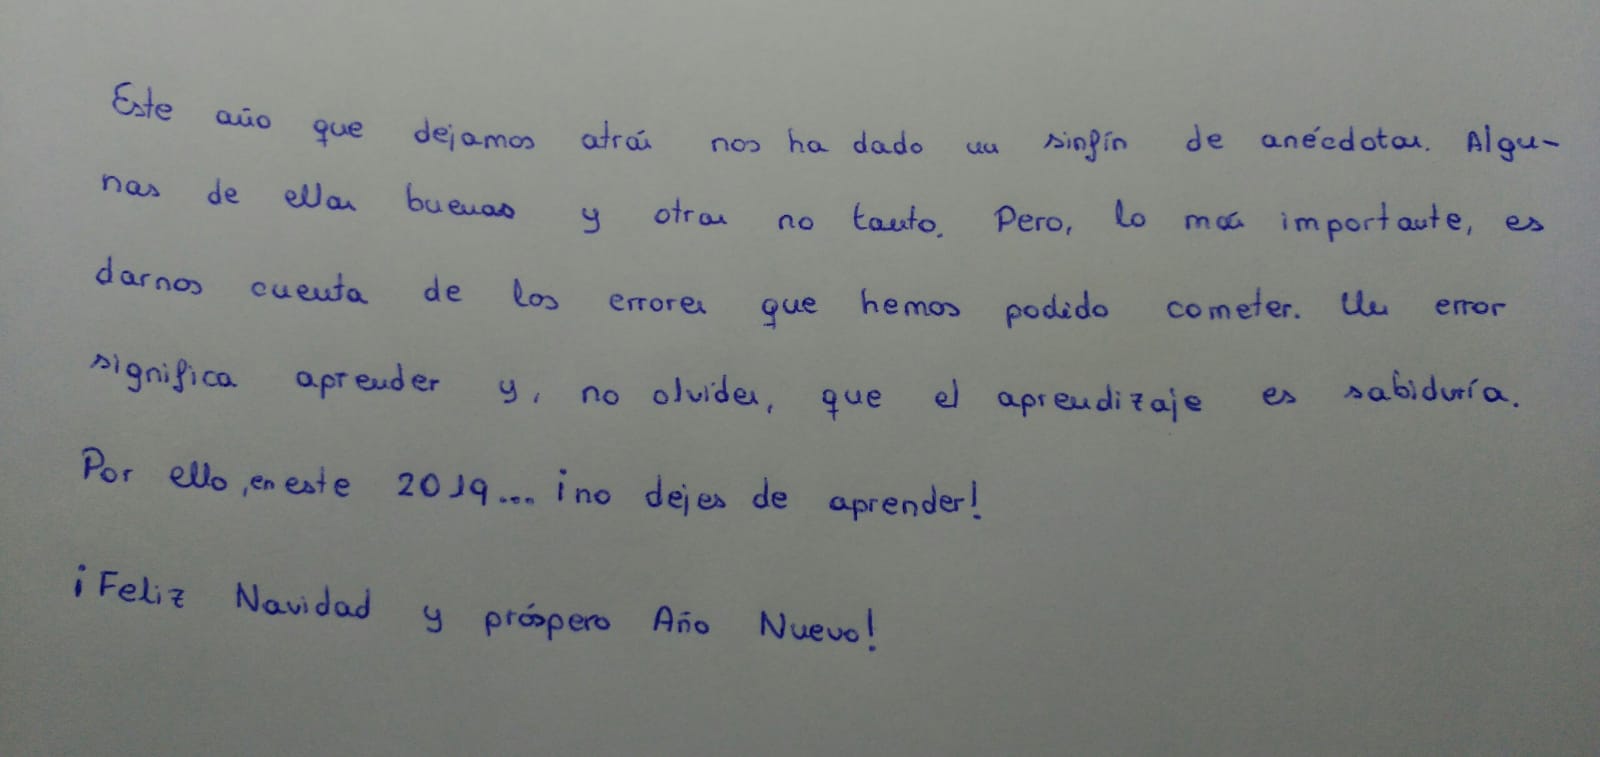 Este año que dejamos atrás nos ha dado un sinfín de anécdotas. Algu-
nas de ellas buenas y otras no tanto. Pero, lo más importante, es
darnos cuenta de los errores que hemos podido cometer. Un error
significa aprender y, no olvides, que el aprendizaje es sabiduría.
Por ello, en este 2019... ¡no dejes de aprender!
¡Feliz Navidad y próspero Año Nuevo!